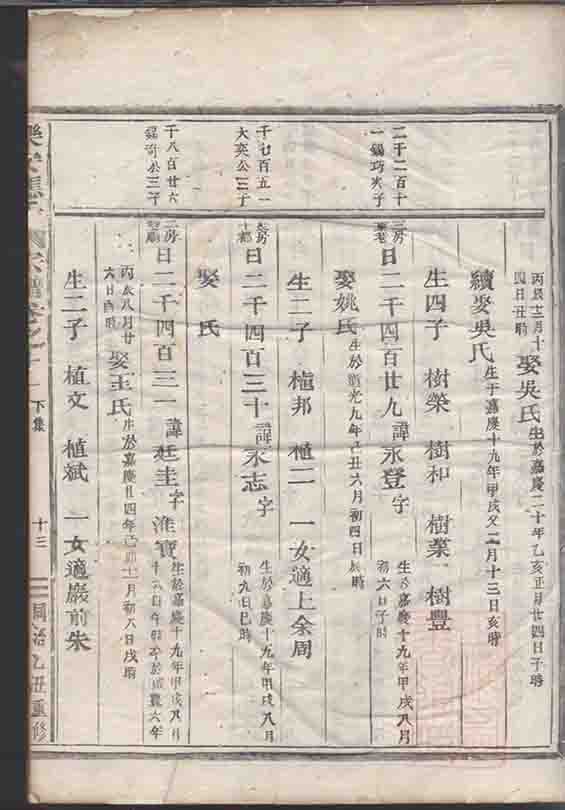 丙辰十二月十四日丑時 娶吳氏 生於嘉慶二十年乙亥正月廿四日子時
續娶吳氏 生于嘉慶十九年甲戌又二月十三日亥時
生四子 樹榮 樹和 樹業 樹豐
二千二百十一錫巧公子
三房 曰二千四百廿九諱永登字 生於嘉慶十九年甲戌八月初六日子時
娶姚氏 生於道光九年己丑六月初四日辰時
生二子 植邦 植二 一女適上余周
千七百五一大奕公三子
房 曰二千四百三十諱永志字 生於嘉慶十九年甲戌八月初九日巳時
娶 氏
千八百廿六錫 公三子
二房 曰二千四百三一諱廷圭字淮寶 生於嘉慶十九年甲戌八月十六日午時卒於咸豐六年
丙辰八月廿六日酉時 娶王氏 生於嘉慶廿四年己卯十一月初八日戌時
生二子 植文 植斌 一女適嚴前朱
宗譜卷之十一 下集 十三 同治乙丑重修